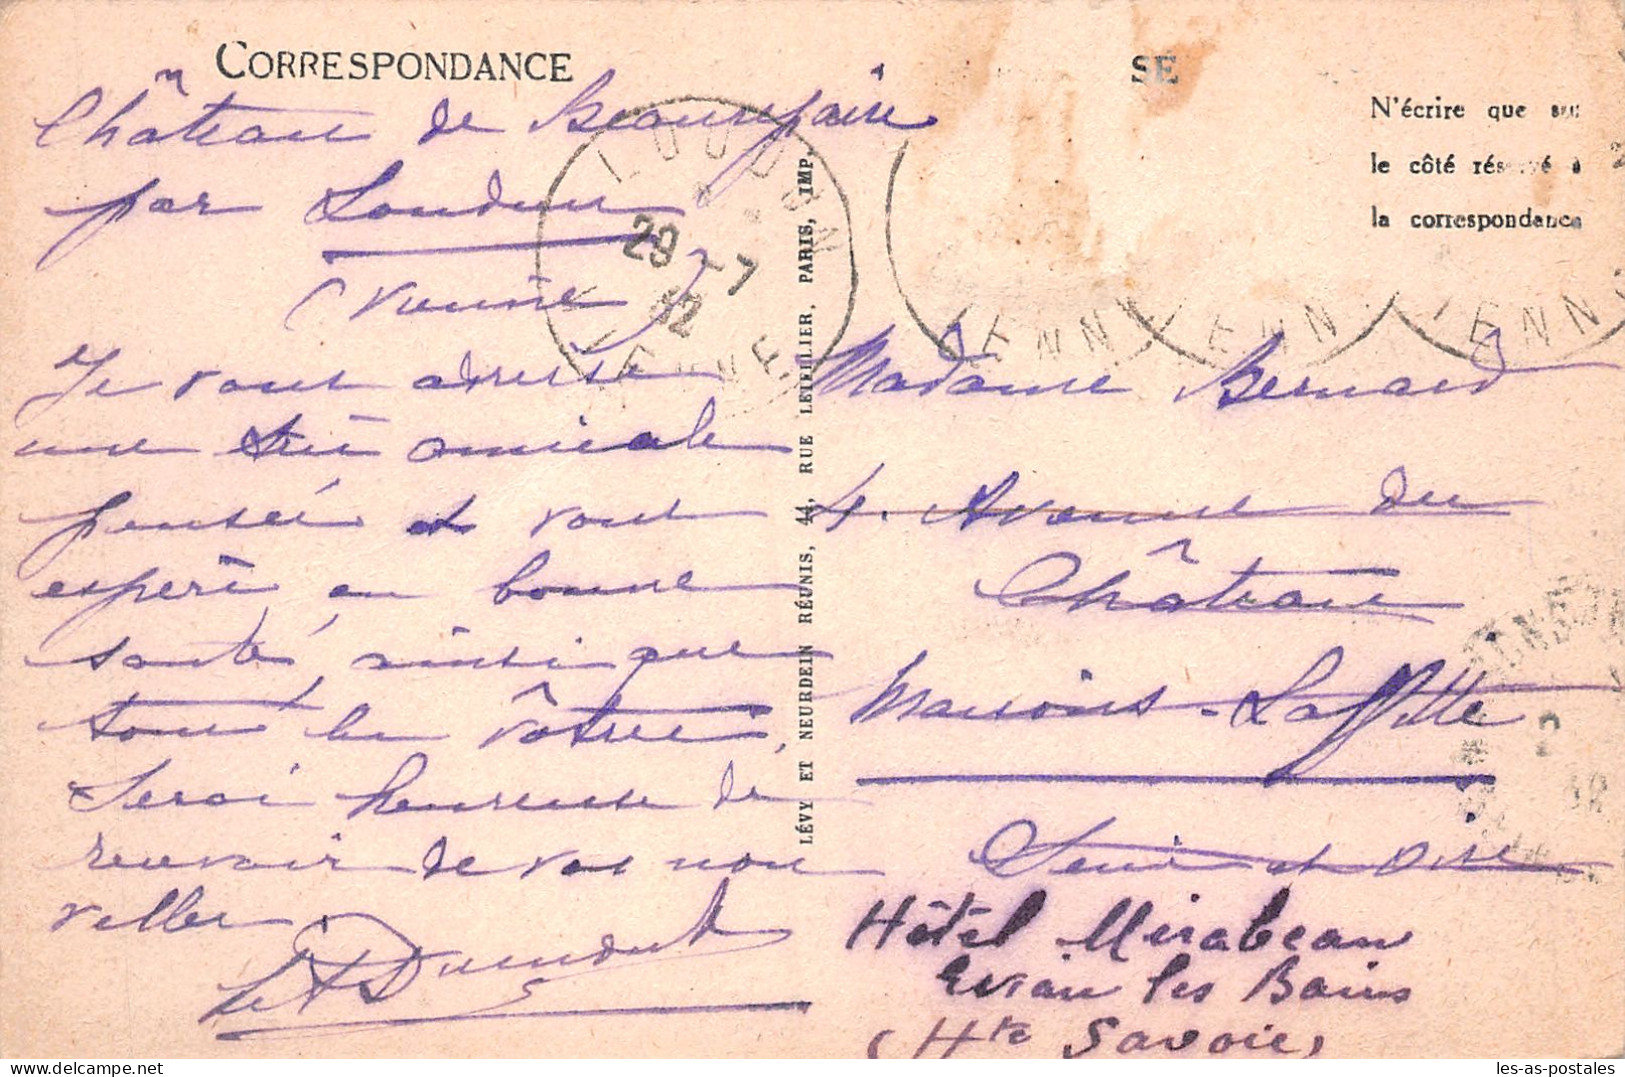 CORRESPONDANCE
SE
N'écrire que sur
le côté réservé à
la correspondance
Château de Beaurepaire
par Loudun
(Vienne)
LOUDUN
29 - 7
32
VIENNE
Je vous adresse
une très amicale
pensée et vous
espère en bonne
santé, ainsi que
tous les vôtres,
Serai heureuse de
revoir de vos nou
velles
Dumont
LÉVY ET NEURDEIN RÉUNIS, 44, RUE LETELLIER, PARIS, IMP.
IENN
IENN
IENN
Madame Bernard
4. Avenue du
Château
Maisons-Laffitte
Seine et Oise
Hôtel Mirabeau
Evian les Bains
(Hte Savoie)
les-as-postales